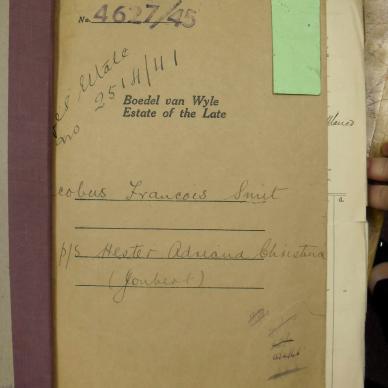 No. 4627/45
Estate
no 2514/41
Boedel van Wyle
Estate of the Late
cobus Francois Smit
p/s Hester Adriana Christina
(Joubert)